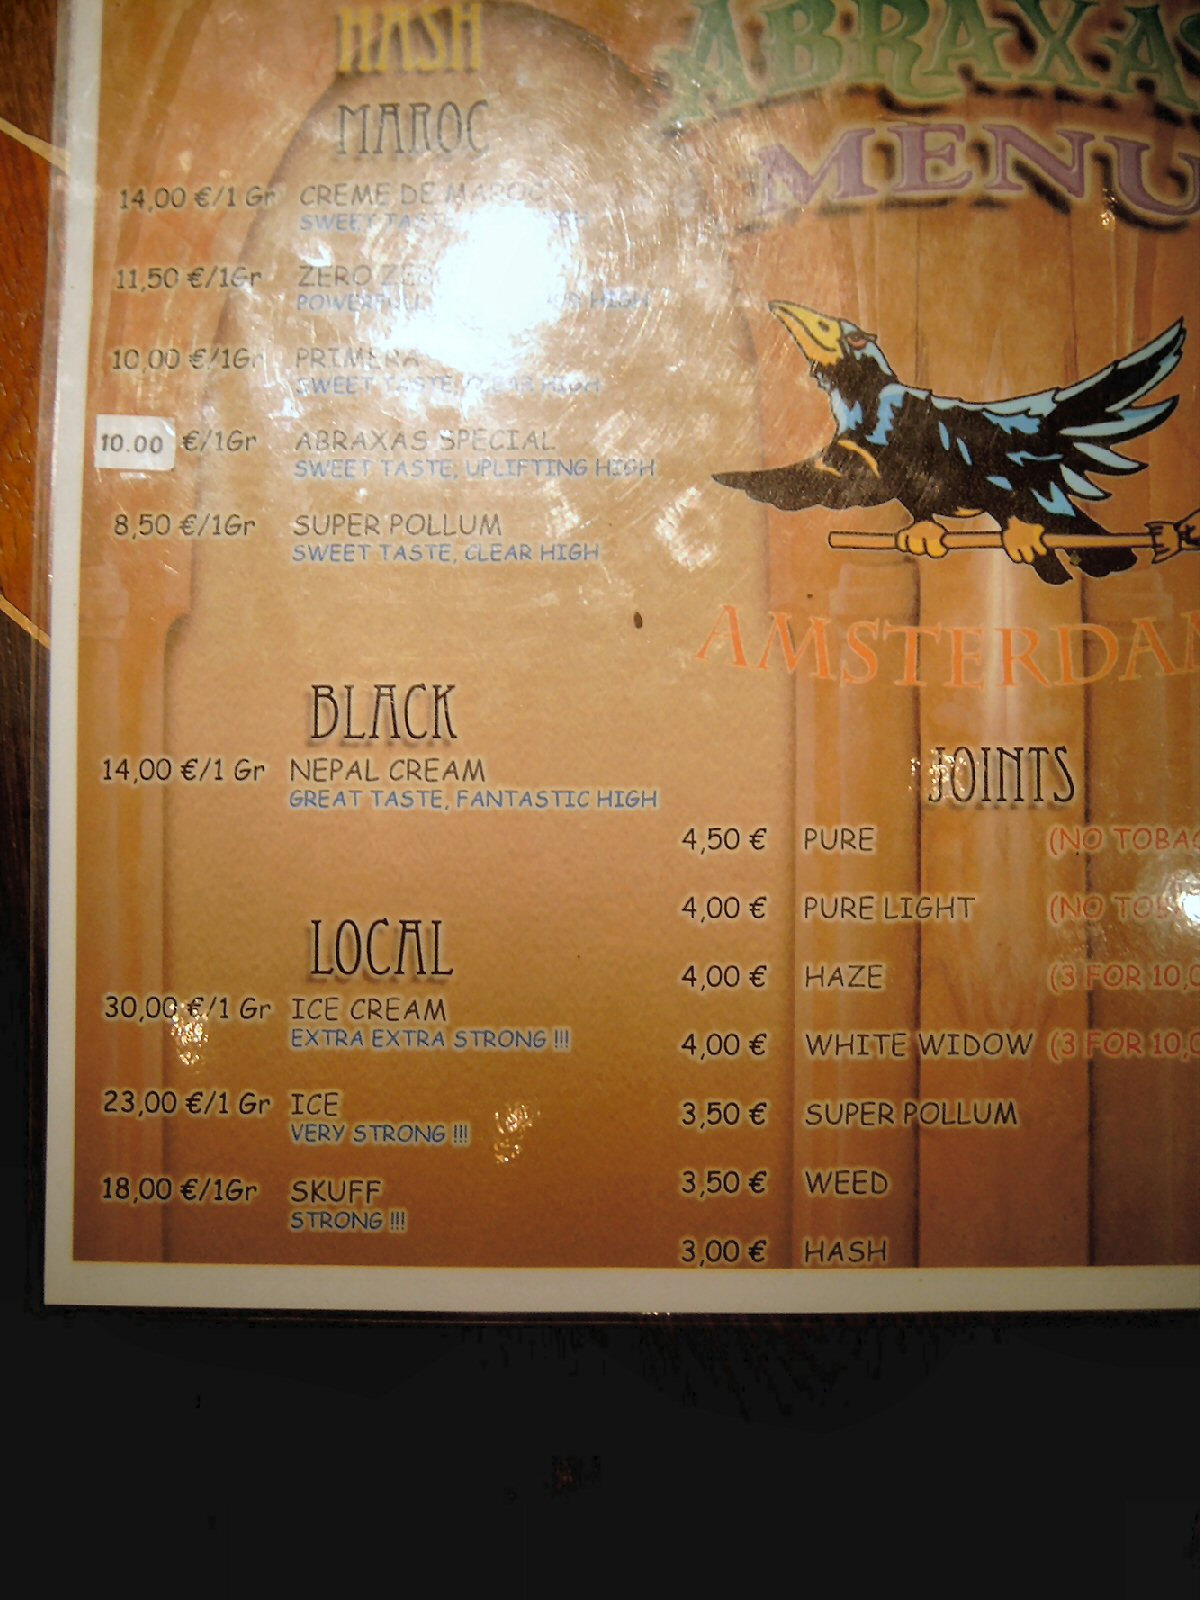 HASH
MAROC
14,00 €/1 Gr CREME DE MAROC
SWEET TASTE, HIGH
11,50 €/1Gr ZERO
POWERFUL HIGH
10,00 €/1Gr PRIMERA
SWEET TASTE, CLEAR HIGH
10.00 €/1Gr ABRAXAS SPECIAL
SWEET TASTE, UPLIFTING HIGH
8,50 €/1Gr SUPER POLLUM
SWEET TASTE, CLEAR HIGH
BLACK
14,00 €/1 Gr NEPAL CREAM
GREAT TASTE, FANTASTIC HIGH
LOCAL
30,00 €/1 Gr ICE CREAM
EXTRA EXTRA STRONG !!!
23,00 €/1 Gr ICE
VERY STRONG !!!
18,00 €/1Gr SKUFF
STRONG !!!
ABRAXAS
MENU
AMSTERDAM
JOINTS
4,50 € PURE (NO TOBAC
4,00 € PURE LIGHT (NO TOB
4,00 € HAZE (3 FOR 10,0
4,00 € WHITE WIDOW (3 FOR 10,0
3,50 € SUPER POLLUM
3,50 € WEED
3,00 € HASH